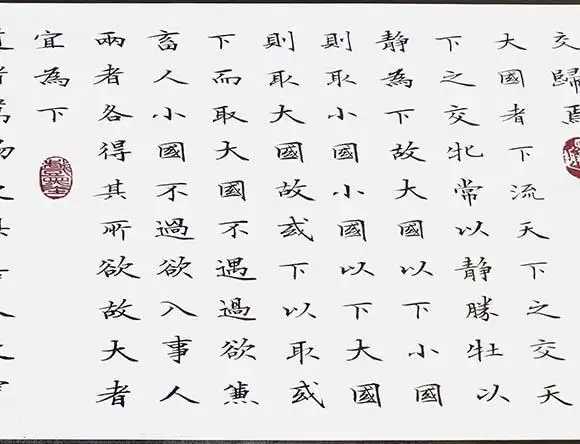 交歸焉
大國者下流天下之交天
下之交牝常以靜勝牡以
靜為下故大國以下小國
則取小國小國以下大國
則取大國故或下以取或
下而取大國不遇過欲兼
畜人小國不過欲入事人
兩者各得其所欲故大者
宜為下